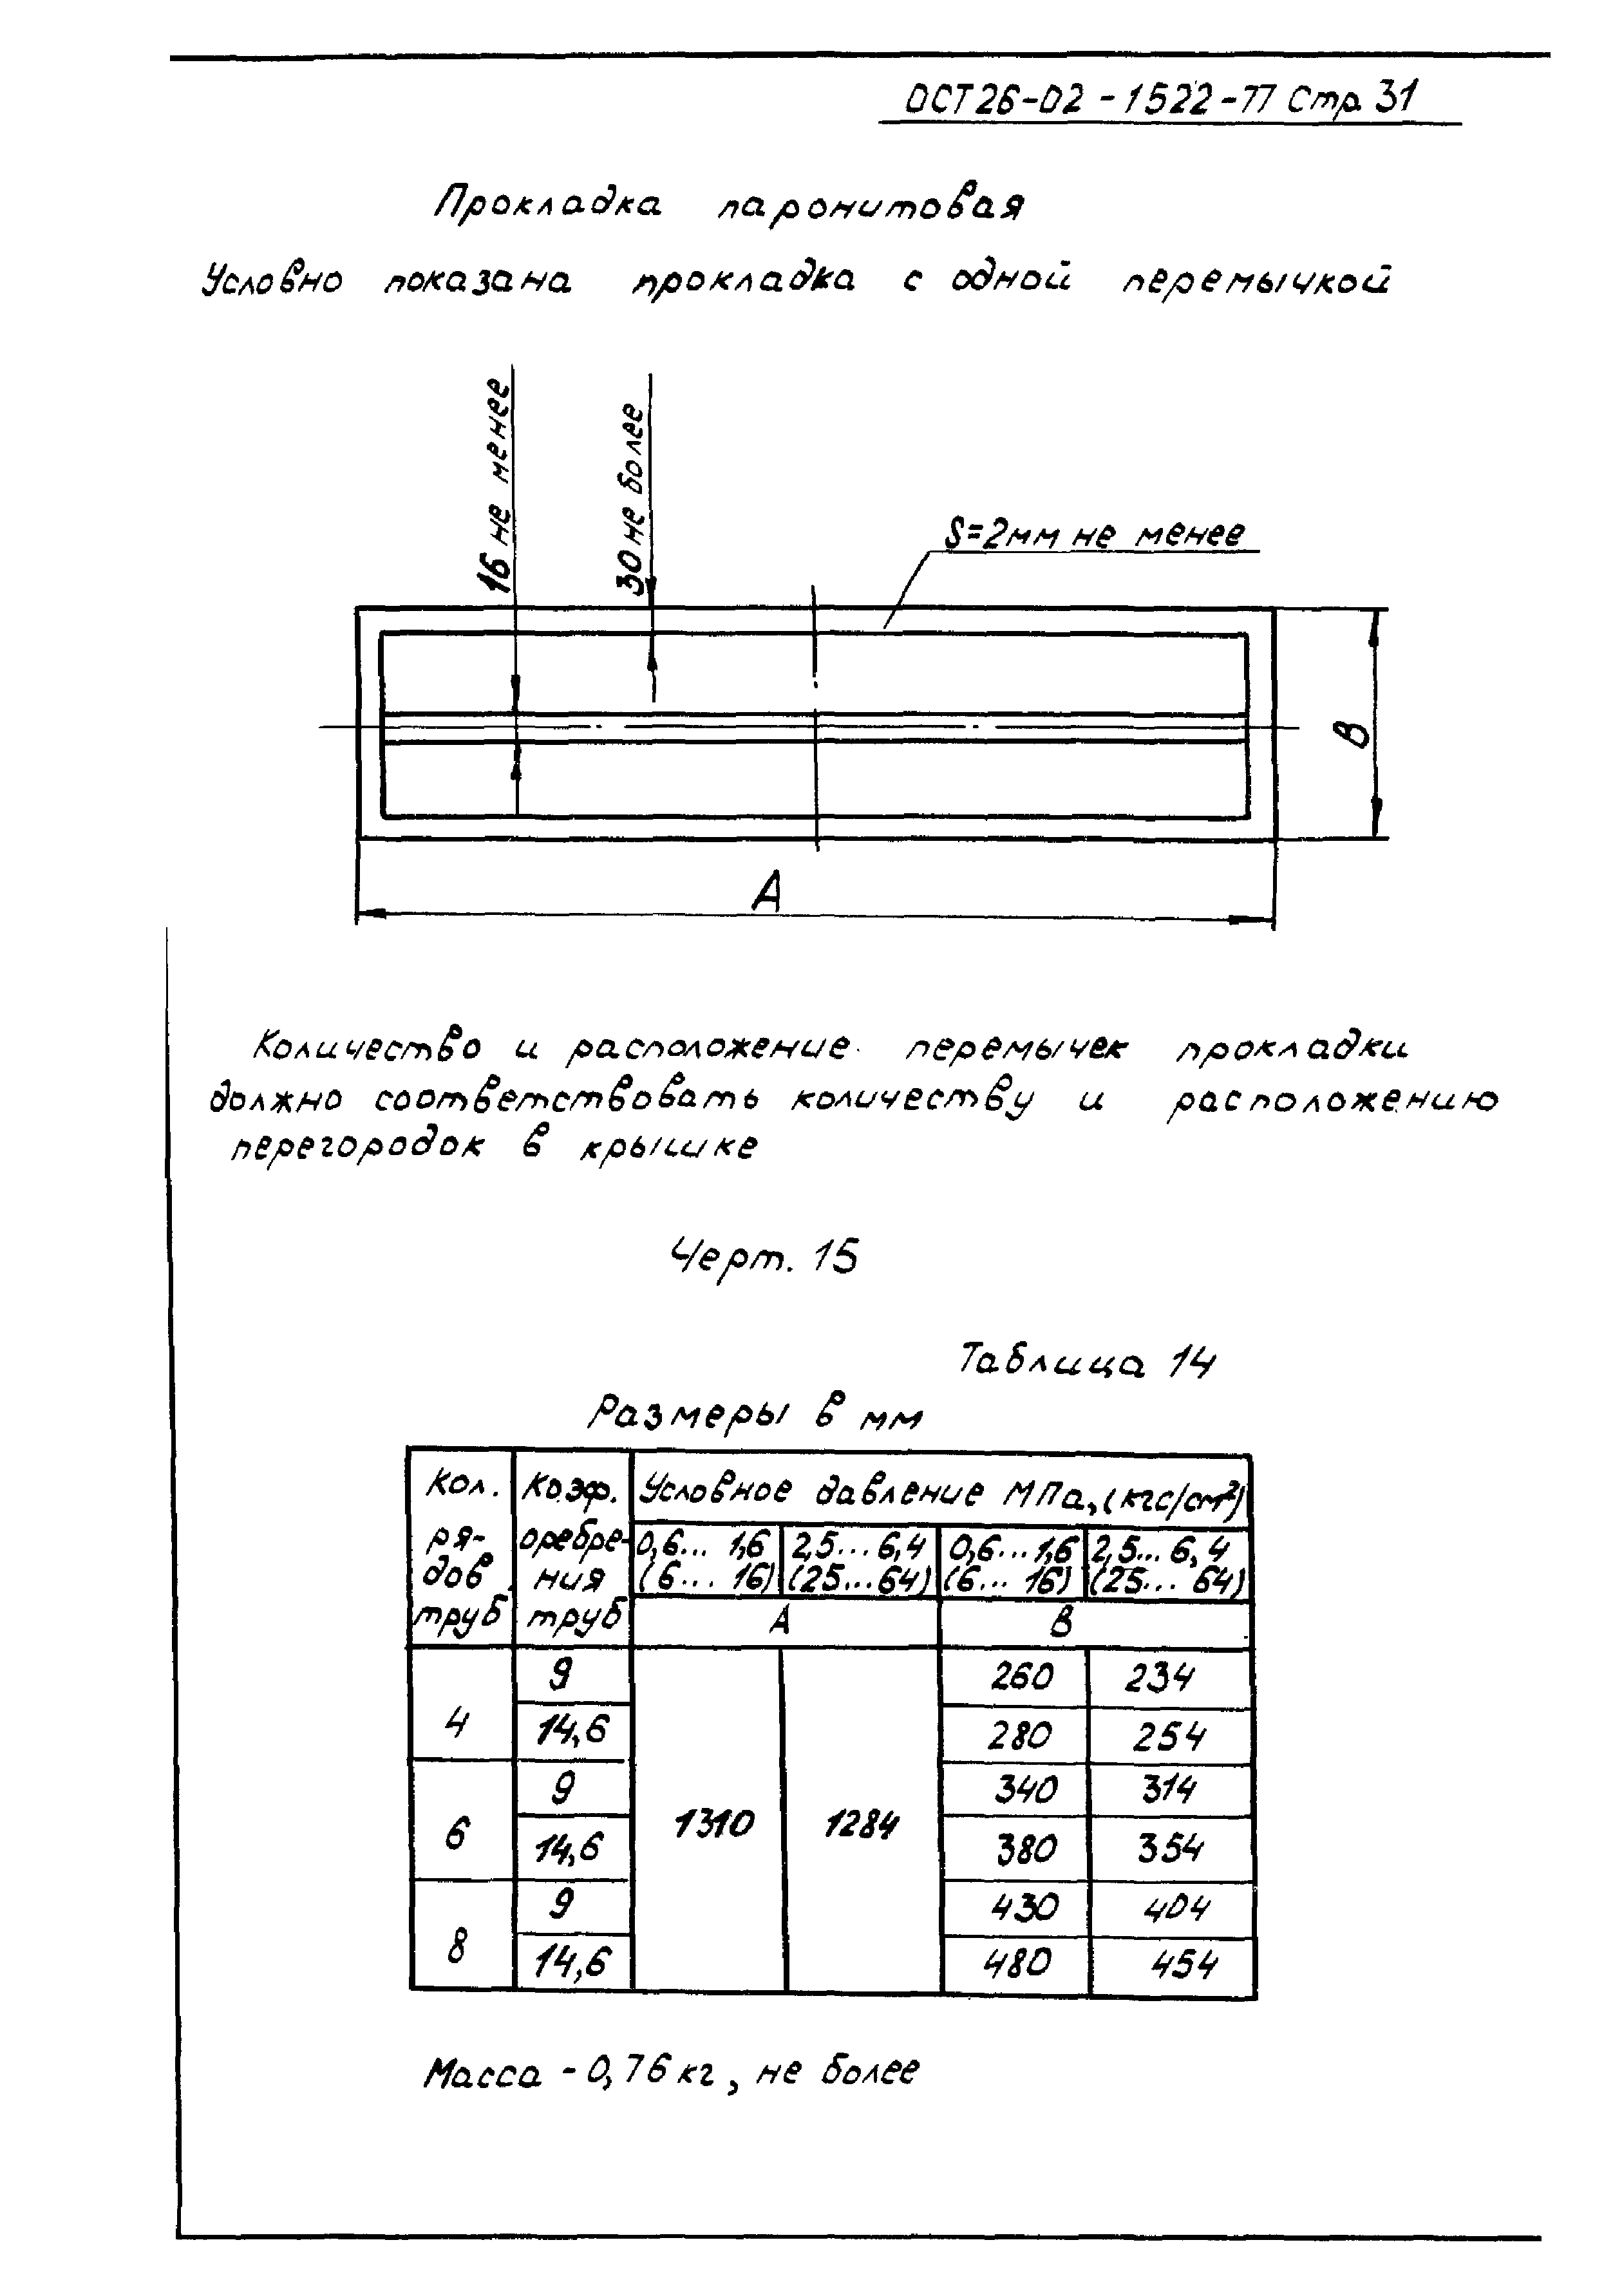 ОСТ 26-02-1522-77 Стр. 31
Прокладка паронитовая
Условно показана прокладка с одной перемычкой
16 не менее
30 не более
S=2мм не менее
В
А
Количество и расположение перемычек прокладки
должно соответствовать количеству и расположению
перегородок в крышке
Черт. 15
Таблица 14
Размеры в мм
Кол. рядов труб
Коэф. оребрения труб
Условное давление МПа, (кгс/см²)
0,6... 1,6 2,5... 6,4 0,6... 1,6 2,5... 6,4
(6... 16) (25... 64) (6... 16) (25... 64)
А В
4 9 1310 1284 260 234
14,6 280 254
6 9 340 314
14,6 380 354
8 9 430 404
14,6 480 454
Масса - 0,76 кг, не более